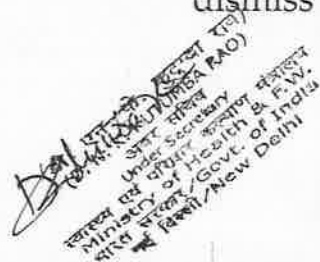 dismiss
RAO)
अवर सचिव
Under Secretary
स्वास्थ्य एवं परिवार कल्याण मंत्रालय
Ministry of Health & F.W.
भारत सरकार/Govt. of India
नई दिल्ली/New Delhi